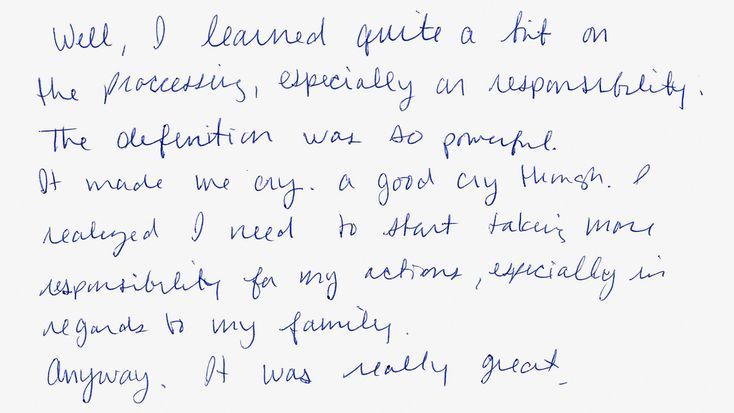 Well, I learned quite a bit on
the processing, especially on responsibility.
The definition was so powerful.
It made me cry. a good cy though. I
realized I need to start taking more
responsibility for my actions, especially in
regards to my family.
Anyway. It was really great.